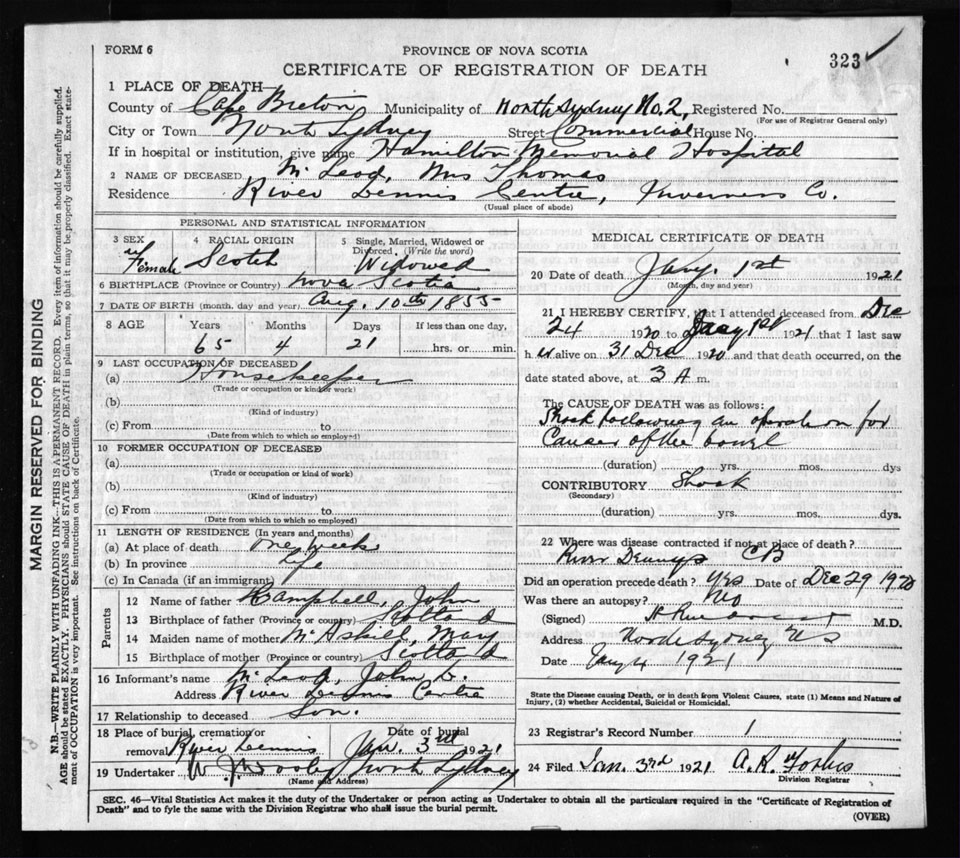 FORM 6
PROVINCE OF NOVA SCOTIA
323
CERTIFICATE OF REGISTRATION OF DEATH
1 PLACE OF DEATH
County of Cape Breton, Municipality of North Sydney No. 2, Registered No.
(For use of Registrar General only)
City or Town North Sydney Street Commercial House No.
If in hospital or institution, give name Hamilton Memorial Hospital
2 NAME OF DECEASED McLeod, Mrs Thomas
Residence River Dennis Centre, Inverness Co.
(Usual place of abode)
PERSONAL AND STATISTICAL INFORMATION
3 SEX Female
4 RACIAL ORIGIN Scotch
5 Single, Married, Widowed or Divorced. (Write the word) Widowed
6 BIRTHPLACE (Province or Country) Nova Scotia
7 DATE OF BIRTH (month, day and year) Aug. 10th 1855
8 AGE Years Months Days If less than one day,
65 4 21 hrs. or min.
9 LAST OCCUPATION OF DECEASED
(a) Housekeeper
(Trade or occupation or kind of work)
(b)
(Kind of industry)
(c) From to
(Date from which to which so employed)
10 FORMER OCCUPATION OF DECEASED
(a)
(Trade or occupation or kind of work)
(b)
(Kind of industry)
(c) From to
(Date from which to which so employed)
11 LENGTH OF RESIDENCE (In years and months)
(a) At place of death one week
(b) In province Life
(c) In Canada (if an immigrant)
Parents
12 Name of father Campbell, John
13 Birthplace of father (Province or country) Scotland
14 Maiden name of mother McAskill, Mary
15 Birthplace of mother (Province or country) Scotland
16 Informant's name McLeod, John D.
Address River Dennis Centre
17 Relationship to deceased Son.
18 Place of burial, cremation or removal River Dennis
Date of burial Jan. 3rd 1921
19 Undertaker North Sydney
(Name and Address)
MEDICAL CERTIFICATE OF DEATH
20 Date of death Jany. 1st 1921
(Month, day and year)
21 I HEREBY CERTIFY, that I attended deceased from Dec
24 1920 to Jany 1st 1921 that I last saw
her alive on 31 Dec 1920 and that death occurred, on the
date stated above, at 3 A m.
The CAUSE OF DEATH was as follows:
Shock following an operation for
Cancer of the bowel
(duration) yrs. mos. dys
CONTRIBUTORY Shock
(Secondary)
(duration) yrs. mos. dys.
22 Where was disease contracted if not at place of death?
River Dennys CB
Did an operation precede death? Yes Date of Dec 29 1920
Was there an autopsy? No
(Signed) M.D.
Address North Sydney NS
Date Jany 4 1921
State the Disease causing Death, or in death from Violent Causes, state (1) Means and Nature of
Injury, (2) whether Accidental, Suicidal or Homicidal.
23 Registrar's Record Number 1
24 Filed Jan. 3rd 1921 A. R. Forbes
Division Registrar
SEC. 46—Vital Statistics Act makes it the duty of the Undertaker or person acting as Undertaker to obtain all the particulars required in the "Certificate of Registration of
Death" and to fyle the same with the Division Registrar who shall issue the burial permit.
(OVER)
MARGIN RESERVED FOR BINDING
N.B.—WRITE PLAINLY WITH UNFADING INK—THIS IS A PERMANENT RECORD. Every item of information should be carefully supplied.
AGE should be stated EXACTLY. PHYSICIANS should STATE CAUSE OF DEATH in plain terms, so that it may be properly classified. Exact state-
ment of OCCUPATION is very important. See instructions on back of Certificate.